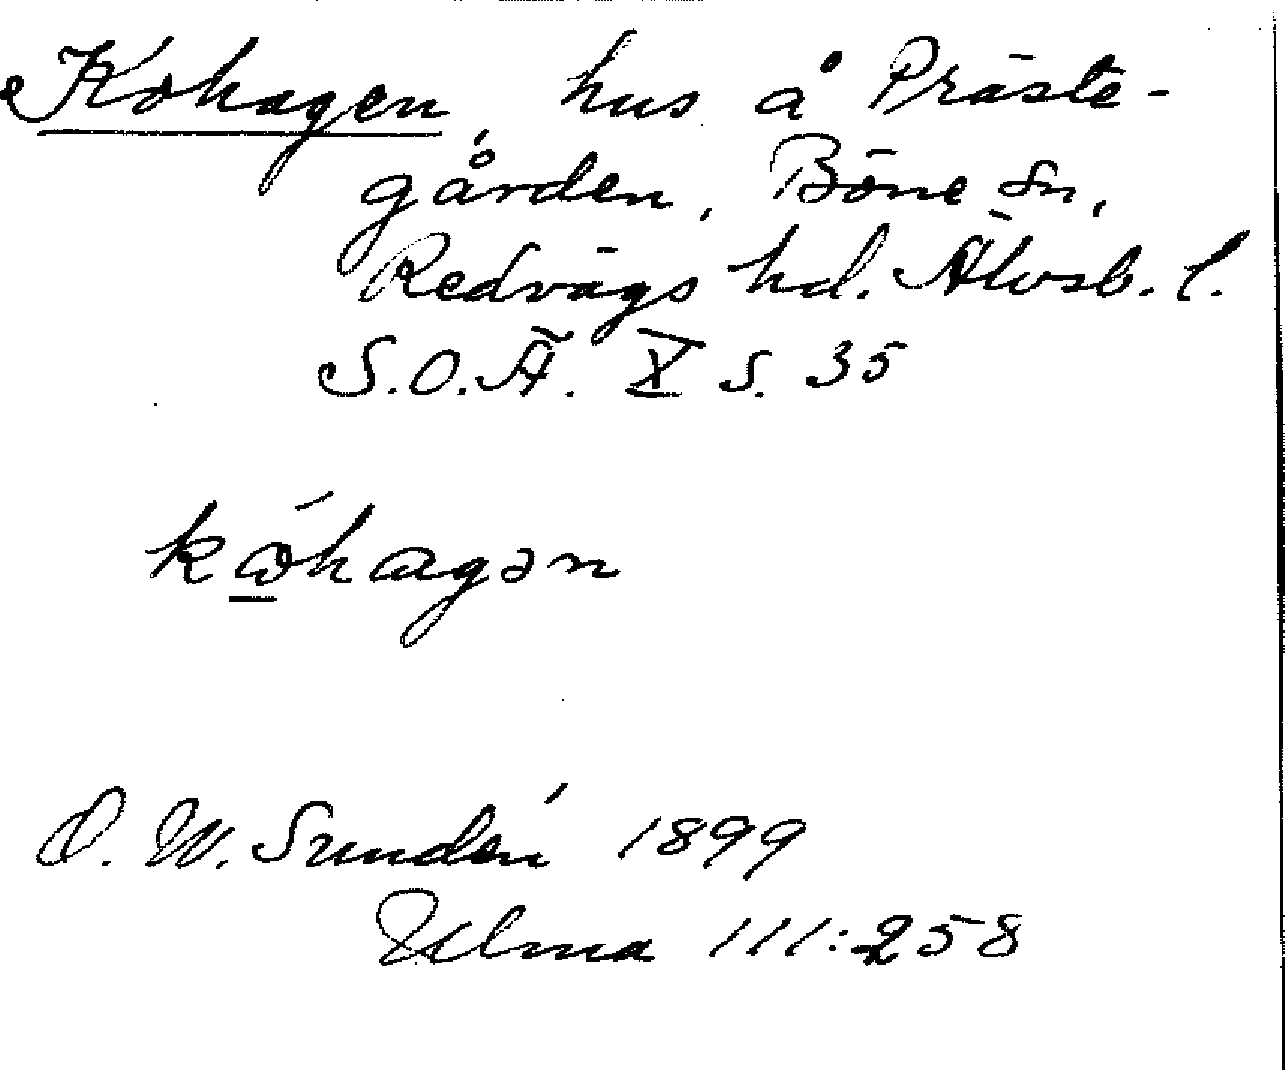 Kohagen, hus å Präste-
gården, Böne sn,
Redvägs hd. Älvsb. l.
S.O.Ä. X s. 35
kωhagən
D. W. Sundén 1899
Ulma 111:258